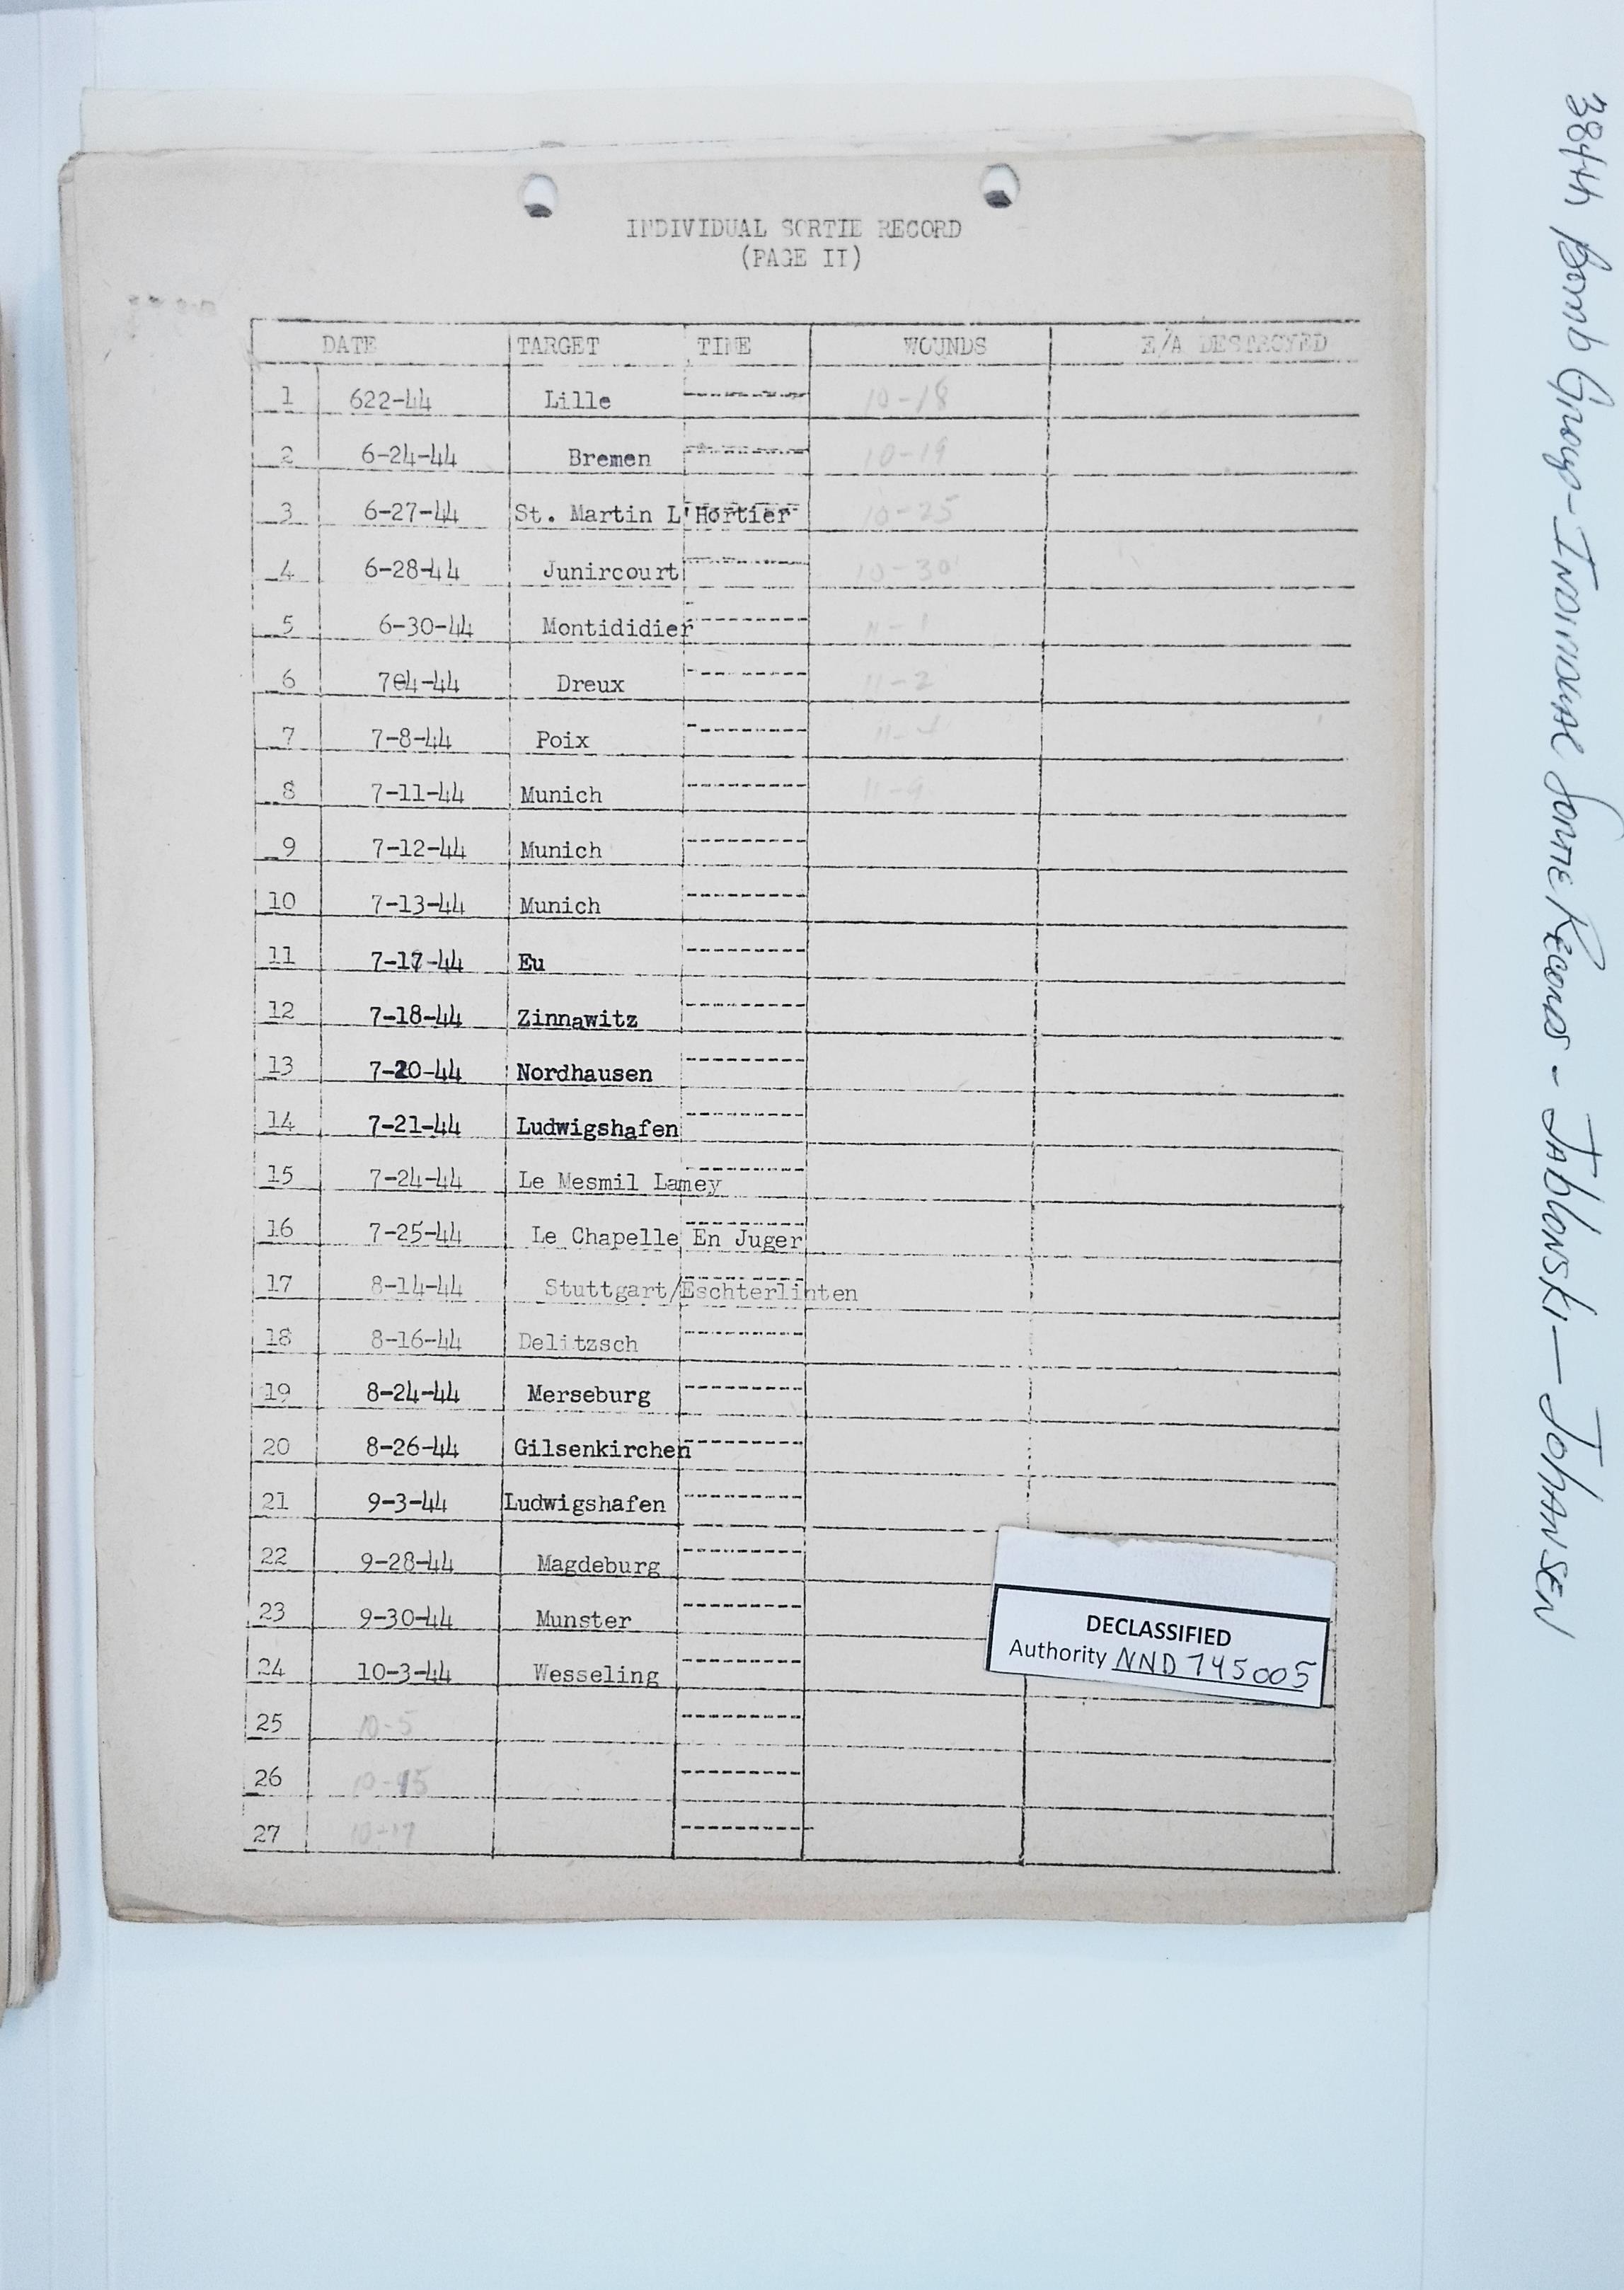 INDIVIDUAL SORTIE RECORD
(PAGE II)
DATE TARGET TIME WOUNDS E/A DESTROYED
1 622-44 Lille -------- 10-18
2 6-24-44 Bremen -------- 10-19
3 6-27-44 St. Martin L'Hortier -------- 10-25
4 6-28-44 Junircourt -------- 10-30
5 6-30-44 Montididier -------- 11-1
6 704-44 Dreux -------- 11-2
7 7-8-44 Poix -------- 11-4
8 7-11-44 Munich -------- 11-9
9 7-12-44 Munich --------
10 7-13-44 Munich --------
11 7-17-44 Eu --------
12 7-18-44 Zinnawitz --------
13 7-20-44 Nordhausen --------
14 7-21-44 Ludwigshafen --------
15 7-24-44 Le Mesmil Lamey --------
16 7-25-44 Le Chapelle En Juger --------
17 8-14-44 Stuttgart/Eschterlinten --------
18 8-16-44 Delitzsch --------
19 8-24-44 Merseburg --------
20 8-26-44 Gilsenkirchen --------
21 9-3-44 Ludwigshafen --------
22 9-28-44 Magdeburg --------
23 9-30-44 Munster --------
24 10-3-44 Wesseling --------
25 10-5 --------
26 10-15 --------
27 10-17 --------
DECLASSIFIED
Authority NND 745005
384th Bomb Group - Individual Sortie Records - Jablonski — Johansen